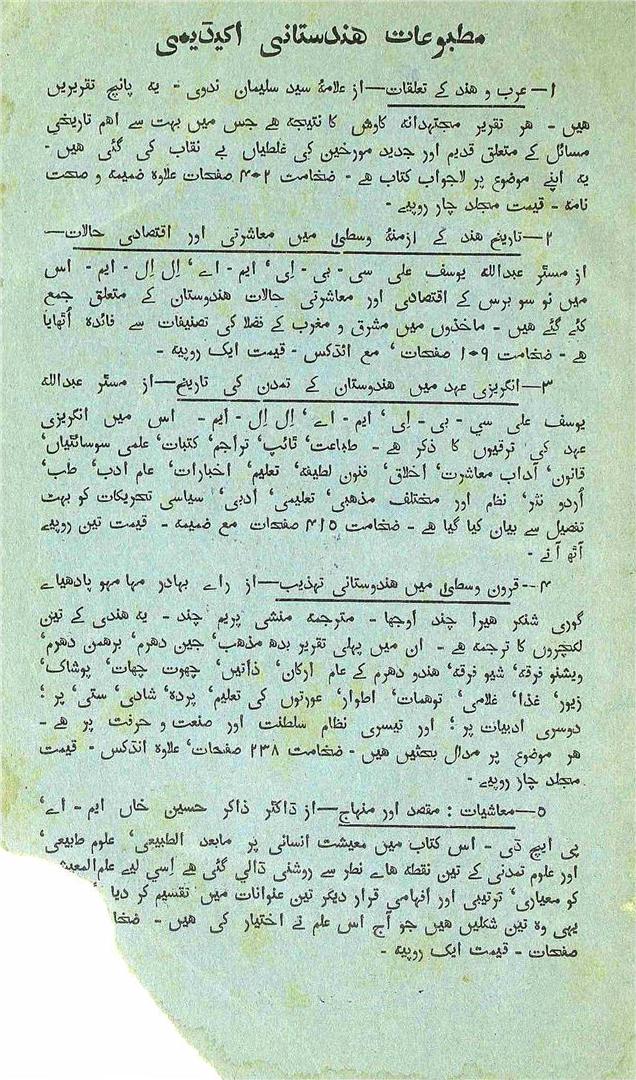 مطبوعات هندستانی اکیڈیمی
۱—عرب و هند کے تعلقات—از علامۂ سید سلیمان ندوی - یه پانچ تقریریں
هیں - هر تقریر مجتهدانه کاوش کا نتیجه هے جس میں بہت سے اهم تاریخی
مسائل کے متعلق قدیم اور جدید مورخین کی غلطیاں بے نقاب کی گئی هیں -
یه اپنے موضوع پر لاجواب کتاب هے - ضخامت ۴۰۲ صفحات علاوہ ضمیمه و صحت
نامه - قیمت مجلد چار روپیے -
۲—تاریخ هند کے ازمنۂ وسطیٰ میں معاشرتی اور اقتصادی حالات—
از مسٹر عبدالله یوسف علی سی - بی - اِی‘ ایم - اے‘ اِل اِل - ایم - اس
میں نو سو برس کے اقتصادی اور معاشرتی حالات هندوستان کے متعلق جمع
کئے گئے هیں - ماخذوں میں مشرق و مغرب کے فضلا کی تصنیفات سے فائدہ اُٹھایا
هے - ضخامت ۱۰۹ صفحات‘ مع انڈکس - قیمت ایک روپیه -
۳—انگریزی عہد میں هندوستان کے تمدن کی تاریخ—از مسٹر عبدالله
یوسف علی سي - بی - اِی‘ ایم - اے‘ اِل اِل - ایم - اس میں انگریزی
عہد کی ترقیوں کا ذکر هے - طباعت‘ ٹائپ‘ تراجم‘ کتبات‘ علمی سوسائٹیاں‘
قانون‘ آداب معاشرت‘ اخلاق‘ فنون لطیفه‘ تعلیم‘ اخبارات‘ عام ادب‘ طب‘
اُردو نثر‘ نظم اور مختلف مذهبی‘ تعلیمی‘ ادبی‘ سیاسی تحریکات کو بہت
تفصیل سے بیان کیا گیا هے - ضخامت ۴۱۵ صفحات مع ضمیمه - قیمت تین روپیے
آٹھ آنے -
۴--قرون وسطیٰ میں هندوستانی تہذیب—از راے بہادر مہا مہو پادھیاے
گوری شنکر هیرا چند اوجھا - مترجمه منشی پریم چند - یه هندی کے تین
لکچروں کا ترجمه هے - ان میں پہلی تقریر بدھ مذهب‘ جین دھرم‘ برهمن دھرم‘
ویشنو فرقه‘ شیو فرقه‘ هندو دھرم کے عام ارکان‘ ذاتیں‘ چھوت چھات‘ پوشاک‘
زیور‘ غذا‘ غلامی‘ توهمات‘ اطوار‘ عورتوں کی تعلیم‘ پردہ‘ شادی‘ ستی‘ پر؛
دوسری ادبیات پر؛ اور تیسری نظام سلطنت اور صنعت و حرفت پر هے -
هر موضوع پر مدلل بحثیں هیں - ضخامت ۲۳۸ صفحات‘ علاوہ انڈکس - قیمت
مجلد چار روپیے -
۵—معاشیات : مقصد اور منہاج—از ڈاکٹر ذاکر حسین خاں ایم - اے‘
پی ایچ ڈی - اس کتاب میں معیشت انسانی پر مابعد الطبیعی‘ علوم طبیعی‘
اور علوم تمدنی کے تین نقطه هاے نظر سے روشنی ڈالی گئی هے اِسی لیے علم‌المعیش
کو معیاری‘ ترتیبی اور افہامی قرار دیکر تین عنوانات میں تقسیم کر دیا
یہی وہ تین شکلیں هیں جو آج اس علم نے اختیار کی هیں -
صفحات - قیمت ایک روپیه -